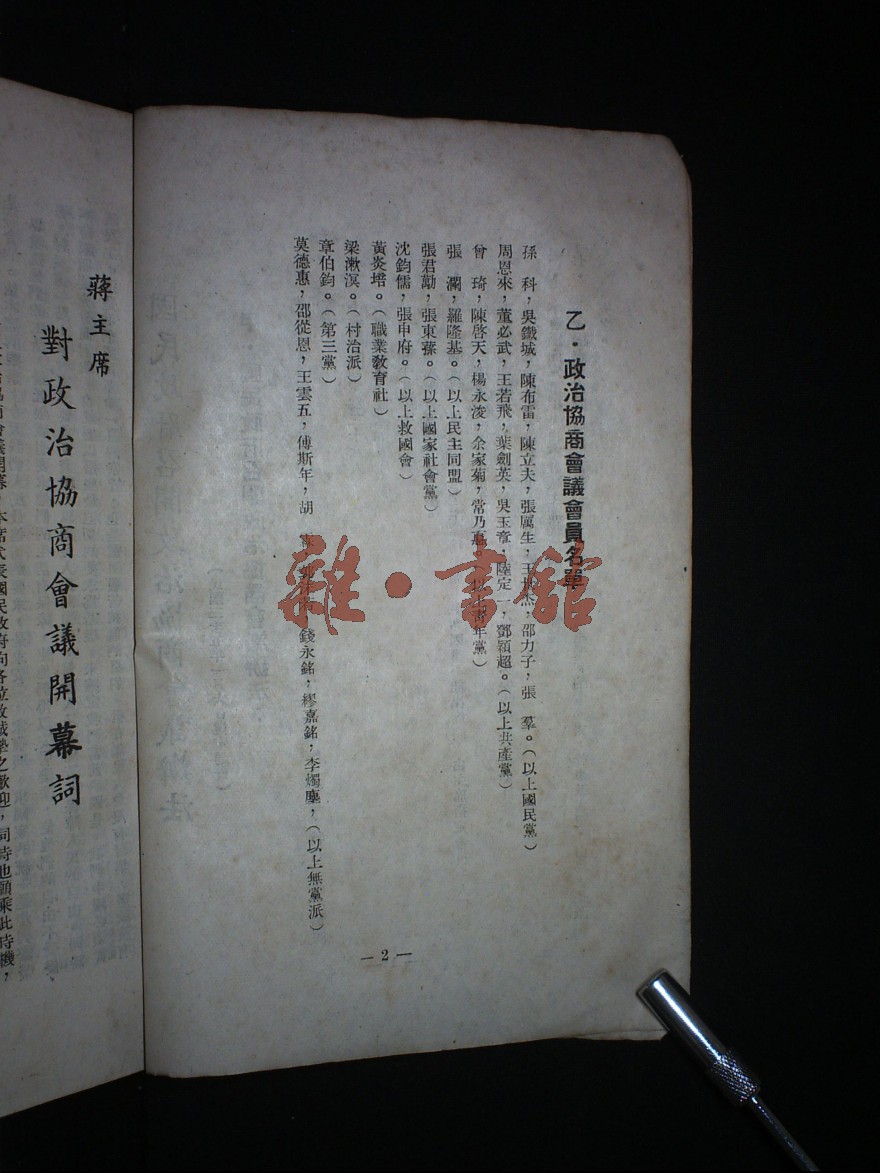 乙・政治協商會議會員名單
孫　科，吳鐵城，陳布雷，陳立夫，張厲生，王世杰，邵力子，張　羣。（以上國民黨）
周恩來，董必武，王若飛，葉劍英，吳玉章，陸定一，鄧穎超。（以上共產黨）
曾　琦，陳啓天，楊永浚，余家菊，常乃惪。（以上青年黨）
張　瀾，羅隆基。（以上民主同盟）
張君勱，張東蓀。（以上國家社會黨）
沈鈞儒，張申府。（以上救國會）
黃炎培。（職業教育社）
梁漱溟。（村治派）
章伯鈞。（第三黨）
莫德惠，邵從恩，王雲五，傅斯年，胡　霖，郭沫若，錢永銘，繆嘉銘，李燭塵，（以上無黨派）
—2—
雜・書館
蔣主席
對政治協商會議開幕詞
開幕，本席代表國民政府向各位致誠摯之歡迎，同時也願乘此時機，